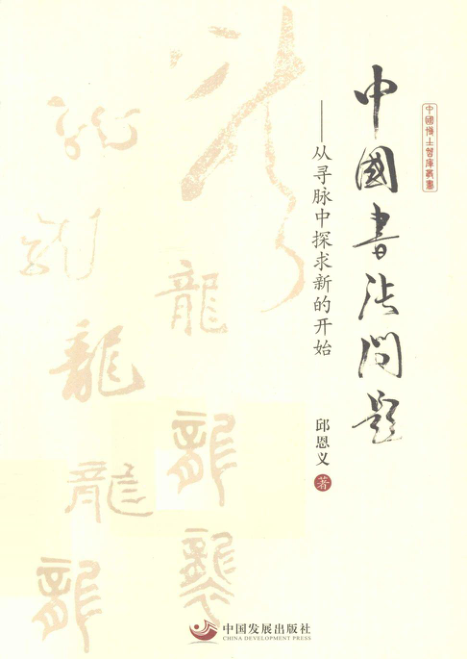 中国博士智库丛书
中國書法问题
——从寻脉中探求新的开始
邱恩义
著
龍
龍
龍
龍
龍
中国发展出版社
CHINA DEVELOPMENT PRESS